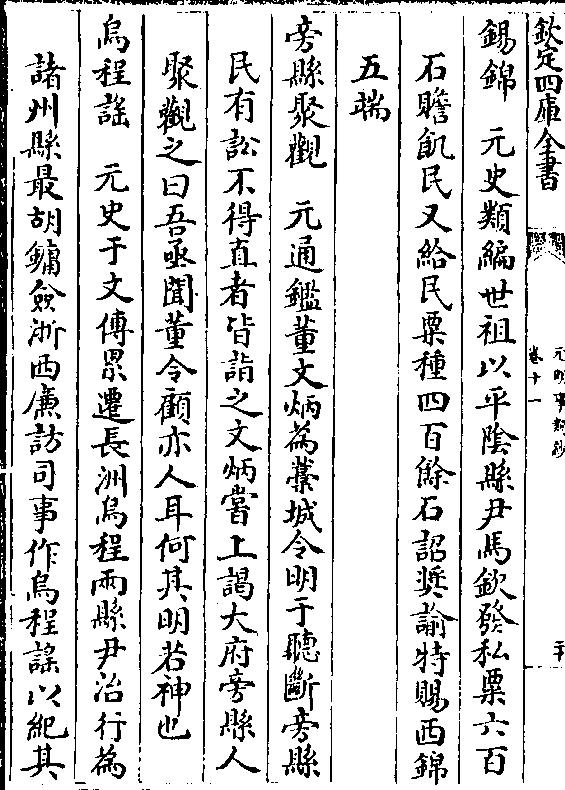 欽定四庫全書
元明事類鈔
卷十一
二十
錫錦　元史類編世祖以平陰縣尹馬欽發私粟六百
石贍飢民又給民粟種四百餘石詔奬諭特賜西錦
五端
旁縣聚觀　元通鑑董文炳為藁城令明于聽斷旁縣
民有訟不得直者皆詣之文炳嘗上謁大府旁縣人
聚觀之曰吾亟聞董令顧亦人耳何其明若神也
烏程謡　元史于文傳累遷長洲烏程兩縣尹治行為
諸州縣最胡鏞僉浙西廉訪司事作烏程謡以紀其